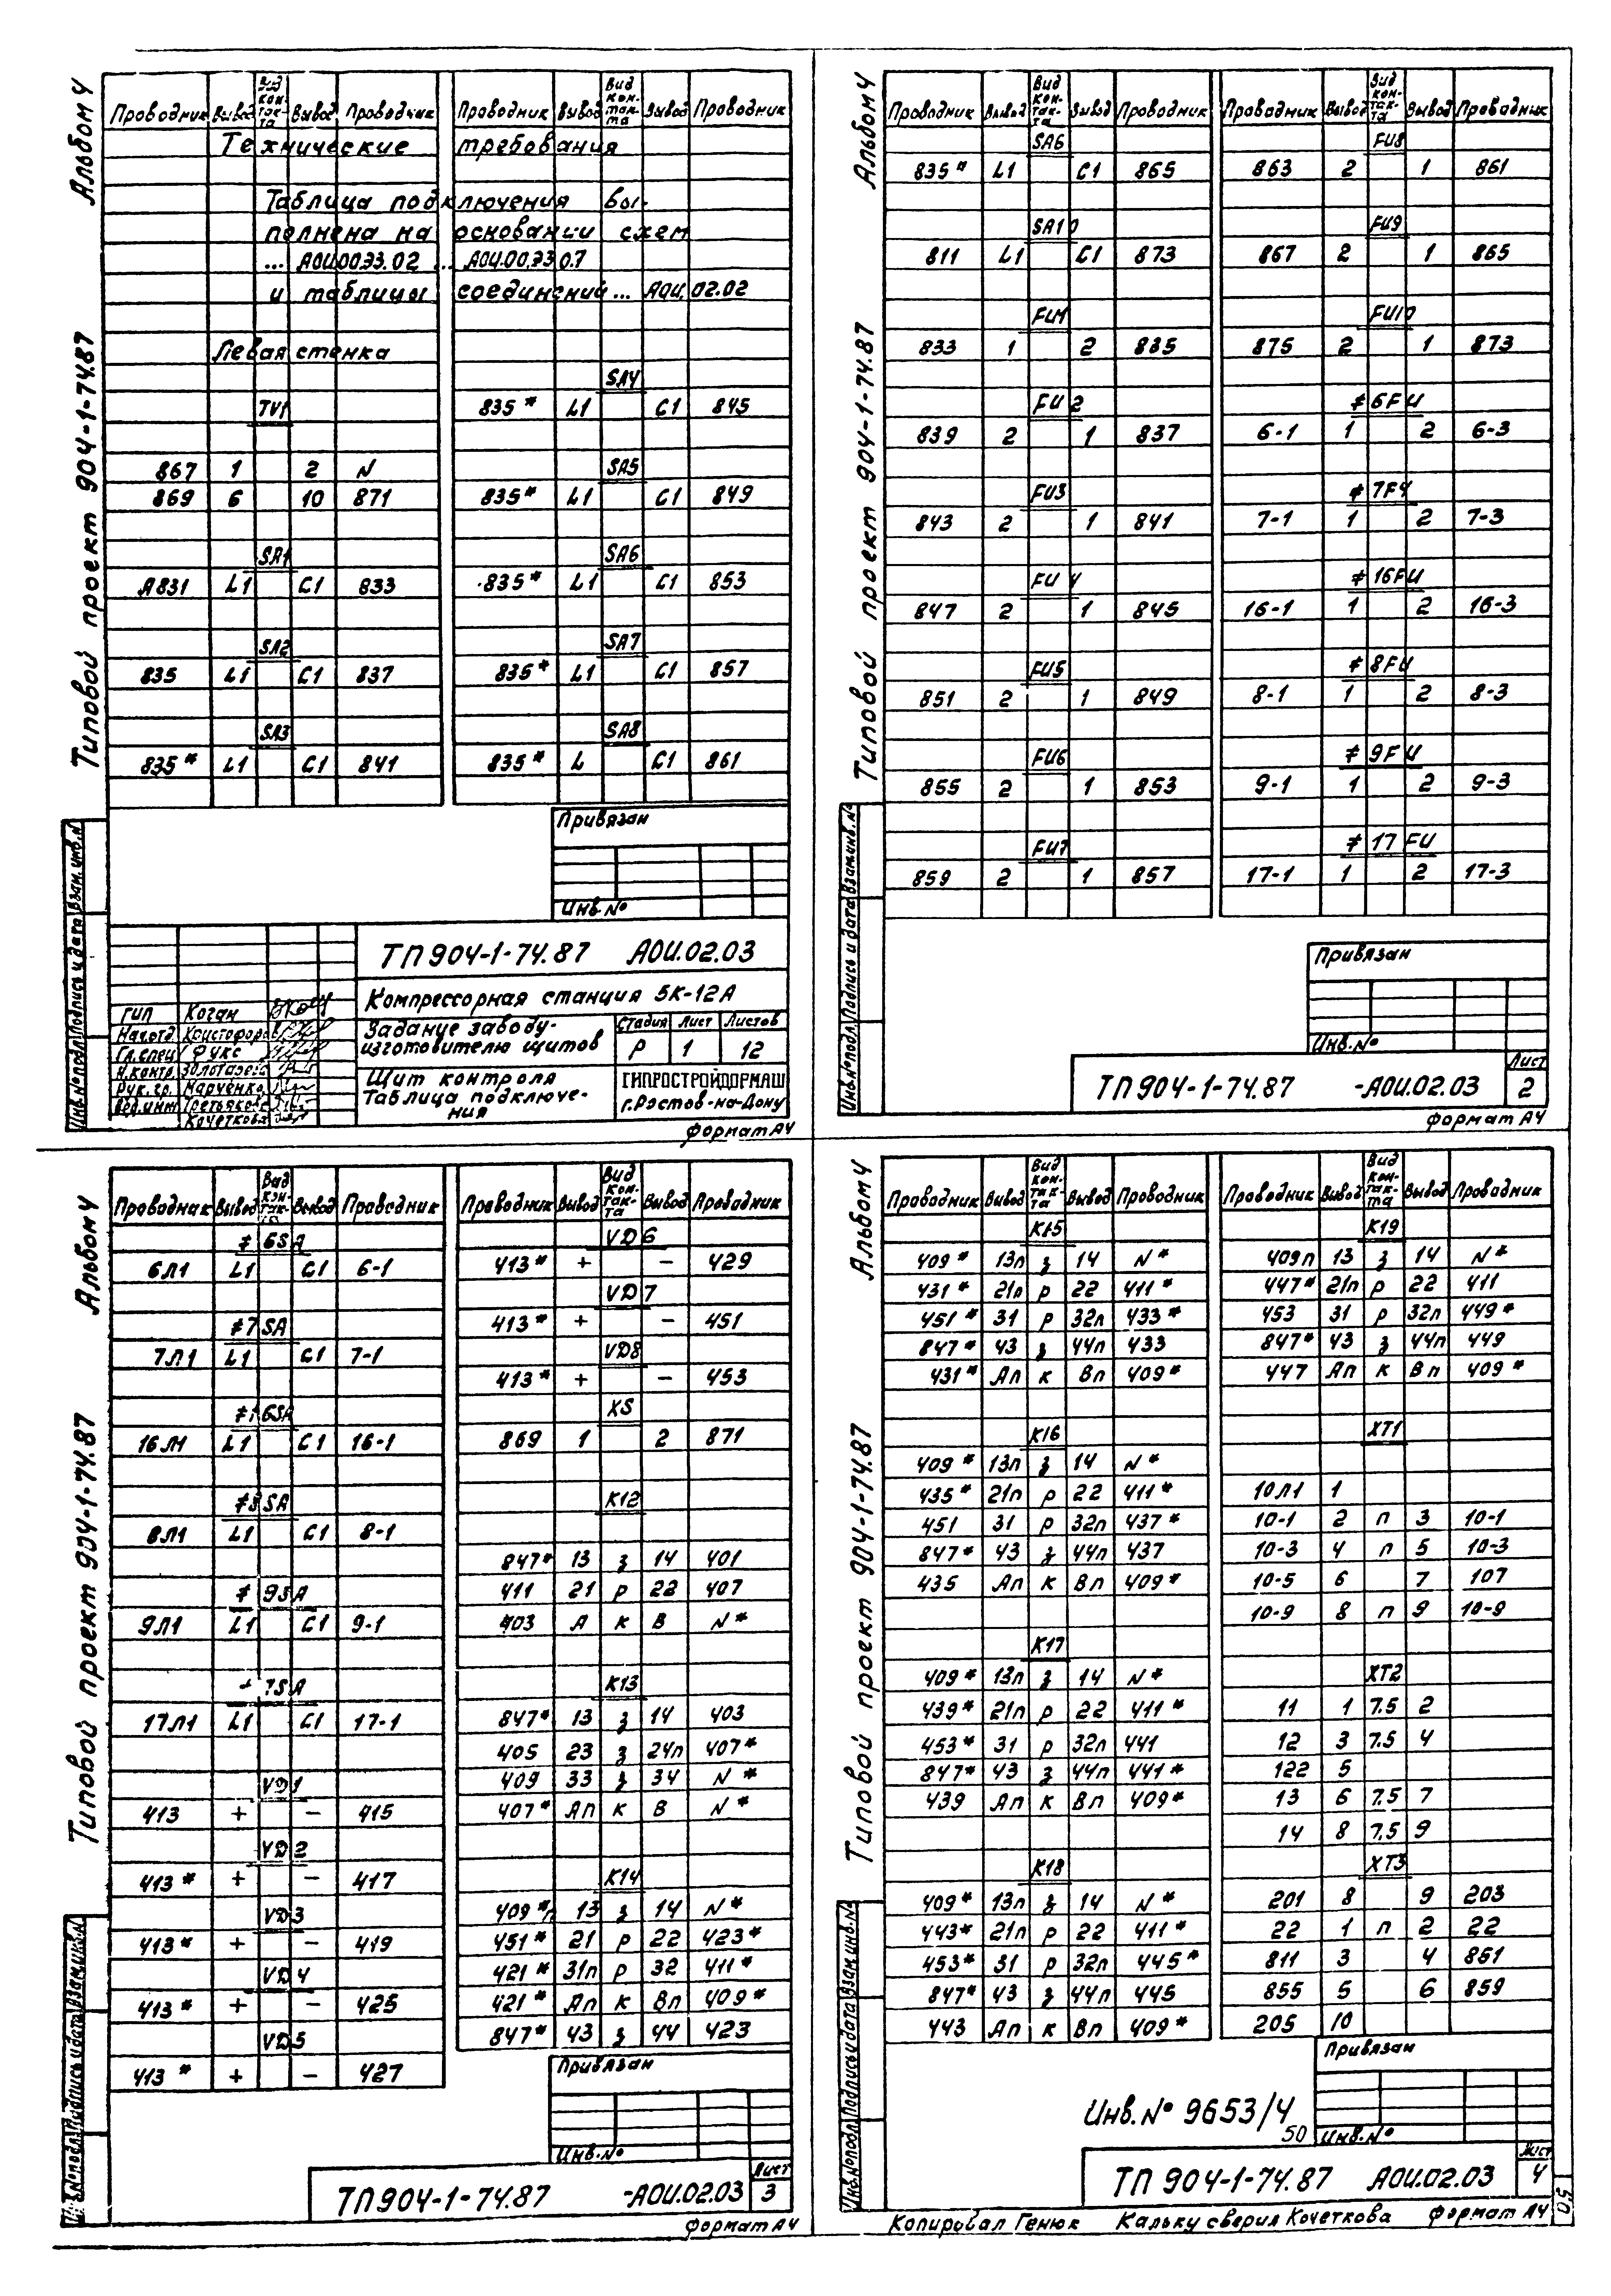 Альбом 4
Типовой проект 904-1-74.87
Проводник Вывод Вид кон-так-та Вывод Проводник Проводник Вывод Вид кон-так-та Вывод Проводник
Технические требования
Таблица подключения вы-
полнена на основании схем
... АОИ.00.ЭЗ.02 ... АОИ.00.ЭЗ.07
и таблицы соединений ... АОИ.02.02
Левая стенка
TV1
867 1 2 N
869 6 10 871
SA1
А831 L1 C1 833
SA2
835 L1 C1 837
SA3
835* L1 C1 841
SA4
835* L1 C1 845
SA5
835* L1 C1 849
SA6
835* L1 C1 853
SA7
835* L1 C1 857
SA8
835* L C1 861
Привязан
Инв.№
ТП 904-1-74.87 АОИ.02.03
Компрессорная станция 5К-12А
Задание заводу-
изготовителю щитов
Стадия Лист Листов
Р 1 12
Щит контроля
Таблица подключе-
ния
ГИПРОСТРОЙДОРМАШ
г.Ростов-на-Дону
ГИП Коган
Нач.отд. Христофоров
Гл.спец Фукс
Н.контр. Золотарева
Рук.гр. Марченко
Вед.инж Третьякова
Кочеткова
Инв.№подл. Подпись и дата Взам.инв.№
Формат А4
Альбом 4
Типовой проект 904-1-74.87
Проводник Вывод Вид кон-так-та Вывод Проводник Проводник Вывод Вид кон-так-та Вывод Проводник
SA6
835* L1 C1 865
SA10
811 L1 C1 873
FU1
833 1 2 835
FU2
839 2 1 837
FU3
843 2 1 841
FU4
847 2 1 845
FU5
851 2 1 849
FU6
855 2 1 853
FU7
859 2 1 857
FU8
863 2 1 861
FU9
867 2 1 865
FU10
875 2 1 873
≠ 6FU
6-1 1 2 6-3
≠ 7FU
7-1 1 2 7-3
≠ 16FU
16-1 1 2 16-3
≠ 8FU
8-1 1 2 8-3
≠ 9FU
9-1 1 2 9-3
≠ 17FU
17-1 1 2 17-3
Привязан
Инв.№
ТП 904-1-74.87 -АОИ.02.03
Лист
2
Инв.№подл. Подпись и дата Взам.инв.№
Формат А4
Альбом 4
Типовой проект 904-1-74.87
Проводник Вывод Вид кон-так-та Вывод Проводник Проводник Вывод Вид кон-так-та Вывод Проводник
≠ 6SA
6Л1 L1 C1 6-1
≠7SA
7Л1 L1 C1 7-1
≠16SA
16Л1 L1 C1 16-1
≠8SA
8Л1 L1 C1 8-1
≠ 9SA
9Л1 L1 C1 9-1
17Л1 L1 C1 17-1
VD1
413 + - 415
VD2
413* + - 417
VD3
413* + - 419
VD4
413* + - 425
VD5
413* + - 427
VD6
413* + - 429
VD7
413* + - 451
VD8
413* + - 453
XS
869 1 2 871
K12
847* 13 з 14 401
411 21 р 22 407
403 А к В N*
K13
847* 13 з 14 403
405 23 з 24п 407*
409 33 з 34 N*
407* Ап к В N*
K14
409*п 13 з 14 N*
451* 21 р 22 423*
421* 31п р 32 411*
421* Ап к Вп 409*
847* 43 з 44 423
Привязан
Инв.№
ТП 904-1-74.87 -АОИ.02.03
Лист
3
Инв.№подл. Подпись и дата Взам.инв.№
Формат А4
Альбом 4
Типовой проект 904-1-74.87
Проводник Вывод Вид кон-так-та Вывод Проводник Проводник Вывод Вид кон-так-та Вывод Проводник
K15
409* 13п з 14 N*
431* 21п р 22 411*
451* 31 р 32п 433*
847* 43 з 44п 433
431* Ап к Вп 409*
K16
409* 13п з 14 N*
435* 21п р 22 411*
451 31 р 32п 437*
847* 43 з 44п 437
435 Ап к Вп 409*
K17
409* 13п з 14 N*
439* 21п р 22 411*
453* 31 р 32п 441
847* 43 з 44п 441*
439 Ап к Вп 409*
K18
409* 13п з 14 N*
443* 21п р 22 411*
453* 31 р 32п 445*
847* 43 з 44п 445
443 Ап к Вп 409*
K19
409п 13 з 14 N*
447* 21п р 22 411
453 31 р 32п 449*
847* 43 з 44п 449
447 Ап к Вп 409*
XT1
10Л1 1
10-1 2 п 3 10-1
10-3 4 п 5 10-3
10-5 6 7 107
10-9 8 п 9 10-9
XT2
11 1 7.5 2
12 3 7.5 4
122 5
13 6 7.5 7
14 8 7.5 9
XT3
201 8 9 203
22 1 п 2 22
811 3 4 851
855 5 6 859
205 10
Привязан
Инв.№ 9653/4
50
Инв.№
ТП 904-1-74.87 АОИ.02.03
Лист
4
Инв.№подл. Подпись и дата Взам.инв.№
50
Копировал Генюк Кальку сверил Кочеткова Формат А4